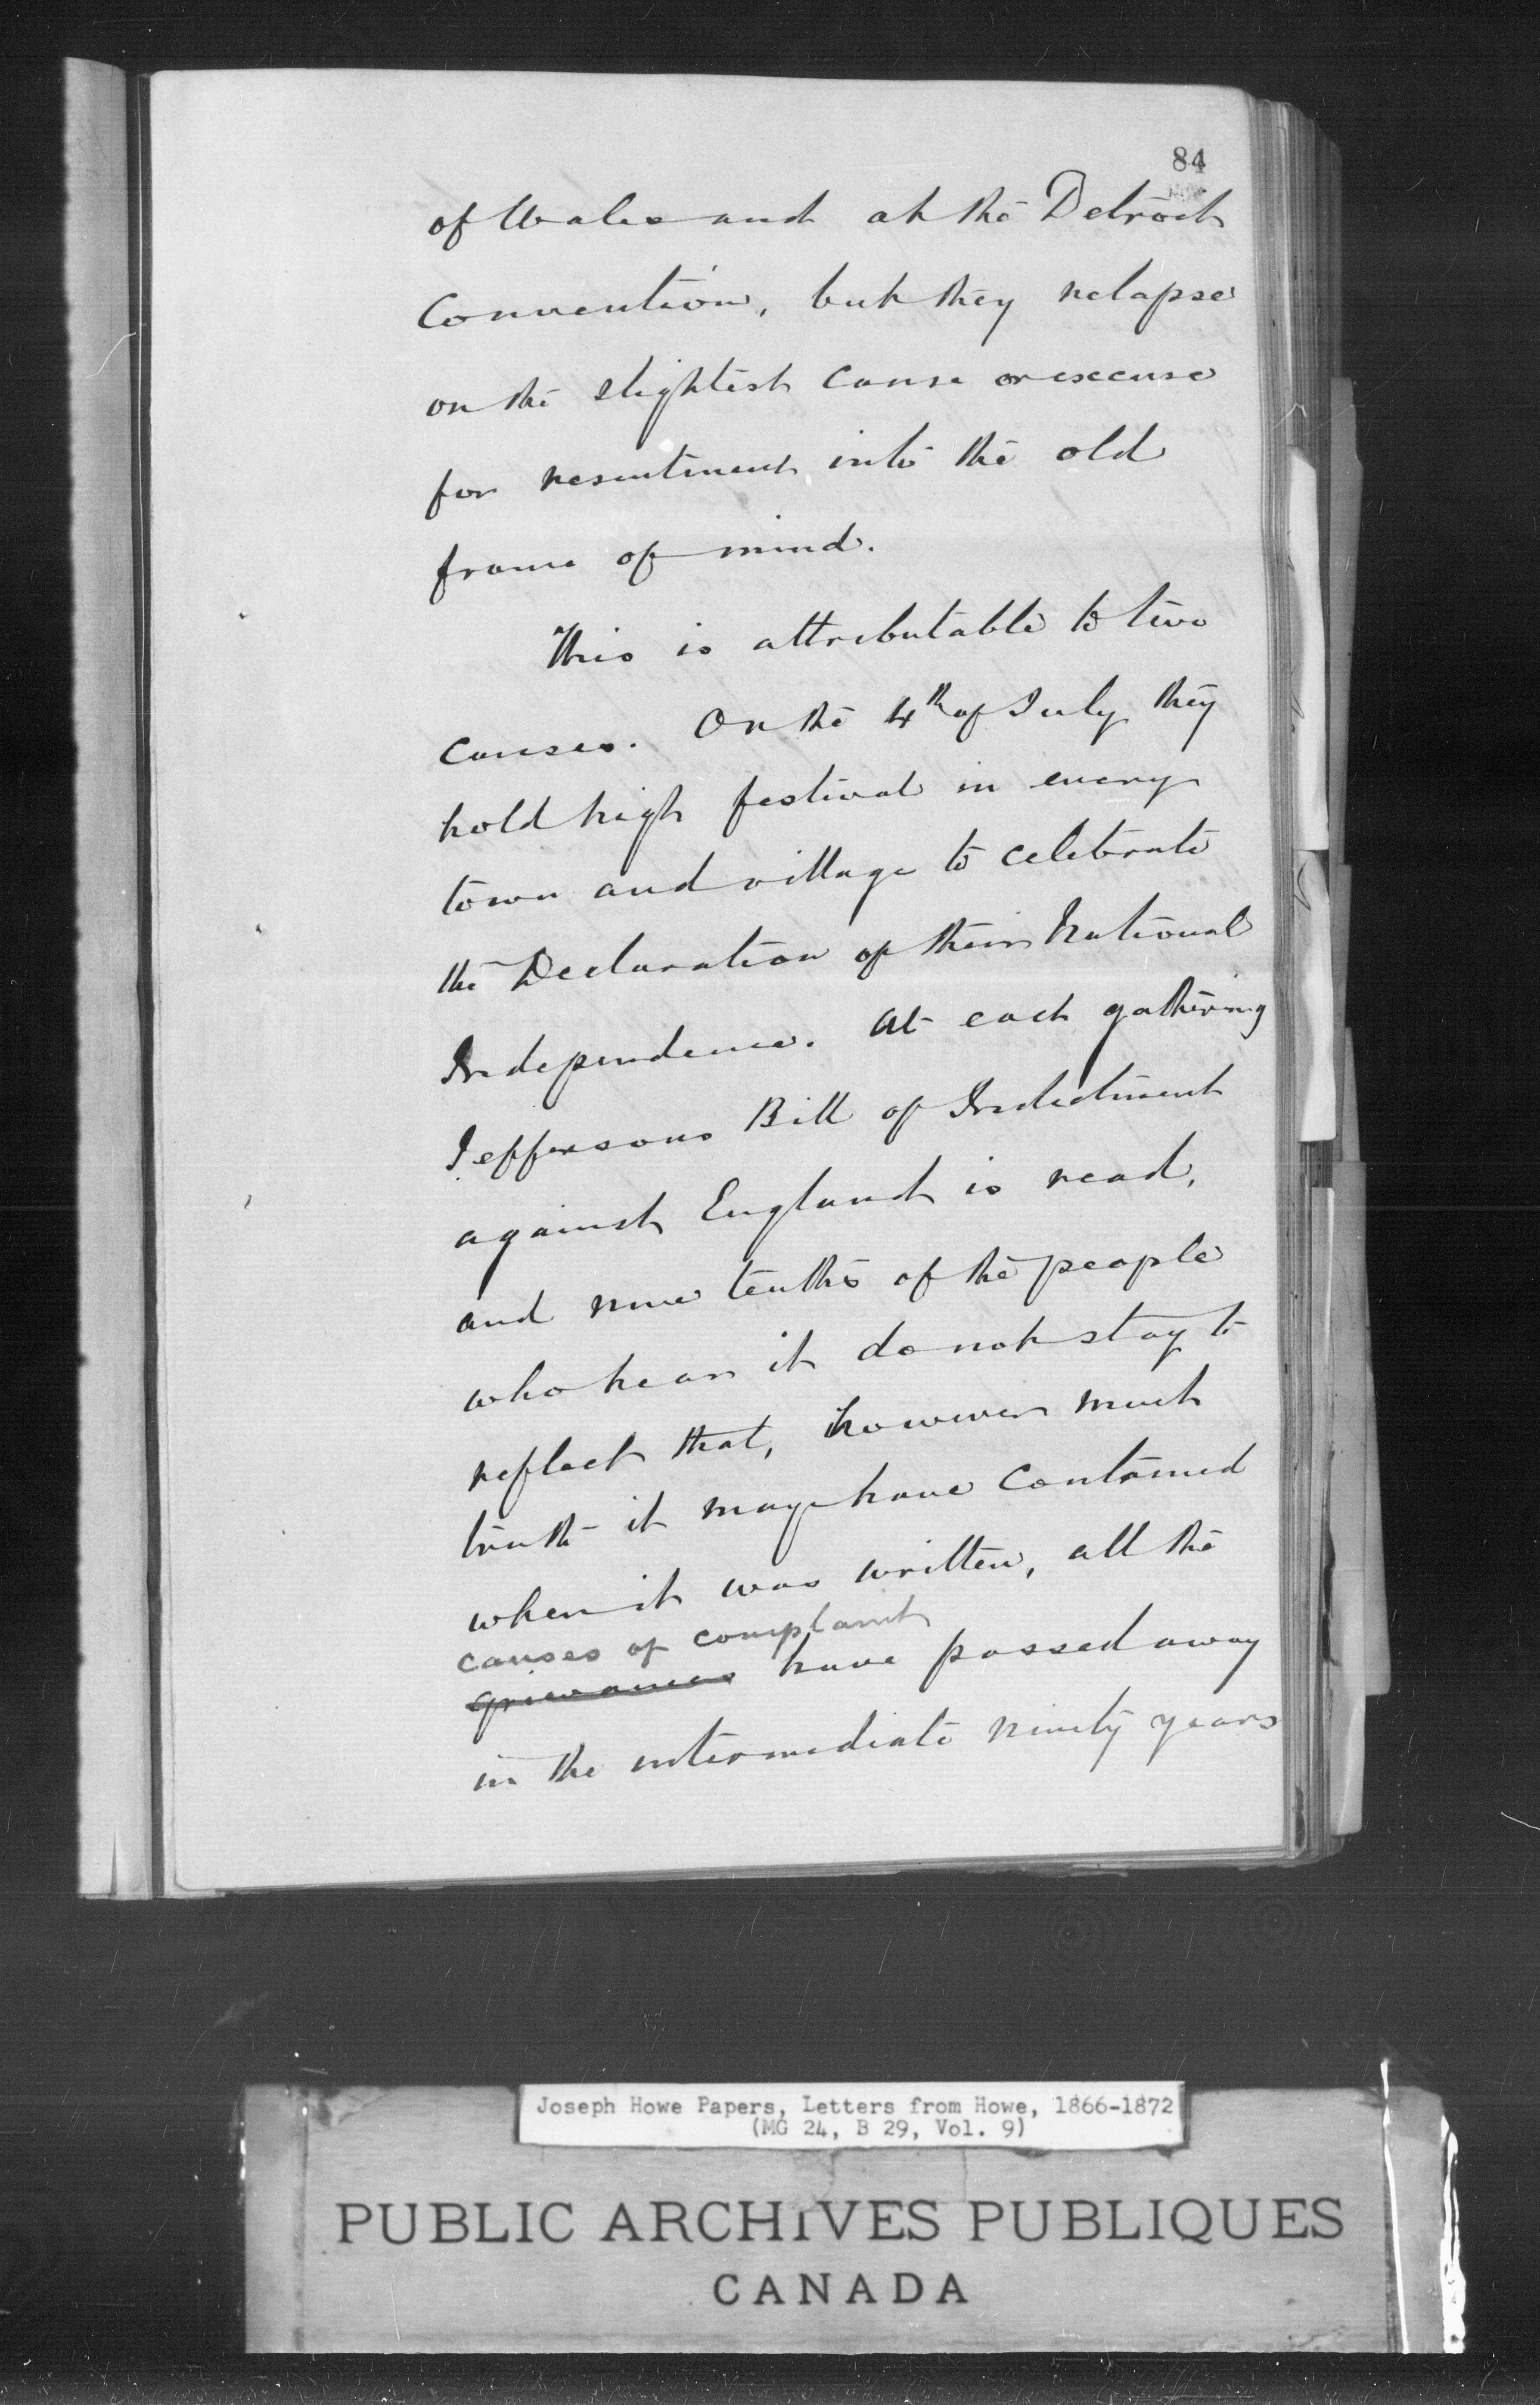 84
of Wales and at the Detroit
Convention, but they relapse
on the slightest cause or excuse
for resentment into the old
frame of mind.
This is attributable to two
causes. On the 4th of July they
hold high festival in every
town and village to celebrate
the Declaration of their National
Independence. At each gathering
Jeffersons Bill of Indictment
against England is read,
and nine tenths of the people
who hear it do not stay to
reflect that, however much
truth it may have contained
when it was written, all the
causes of complaint
grievances have passed away
in the intermediate ninety years
Joseph Howe Papers, Letters from Howe, 1866-1872
(MG 24, B 29, Vol. 9)
PUBLIC ARCHIVES PUBLIQUES
CANADA